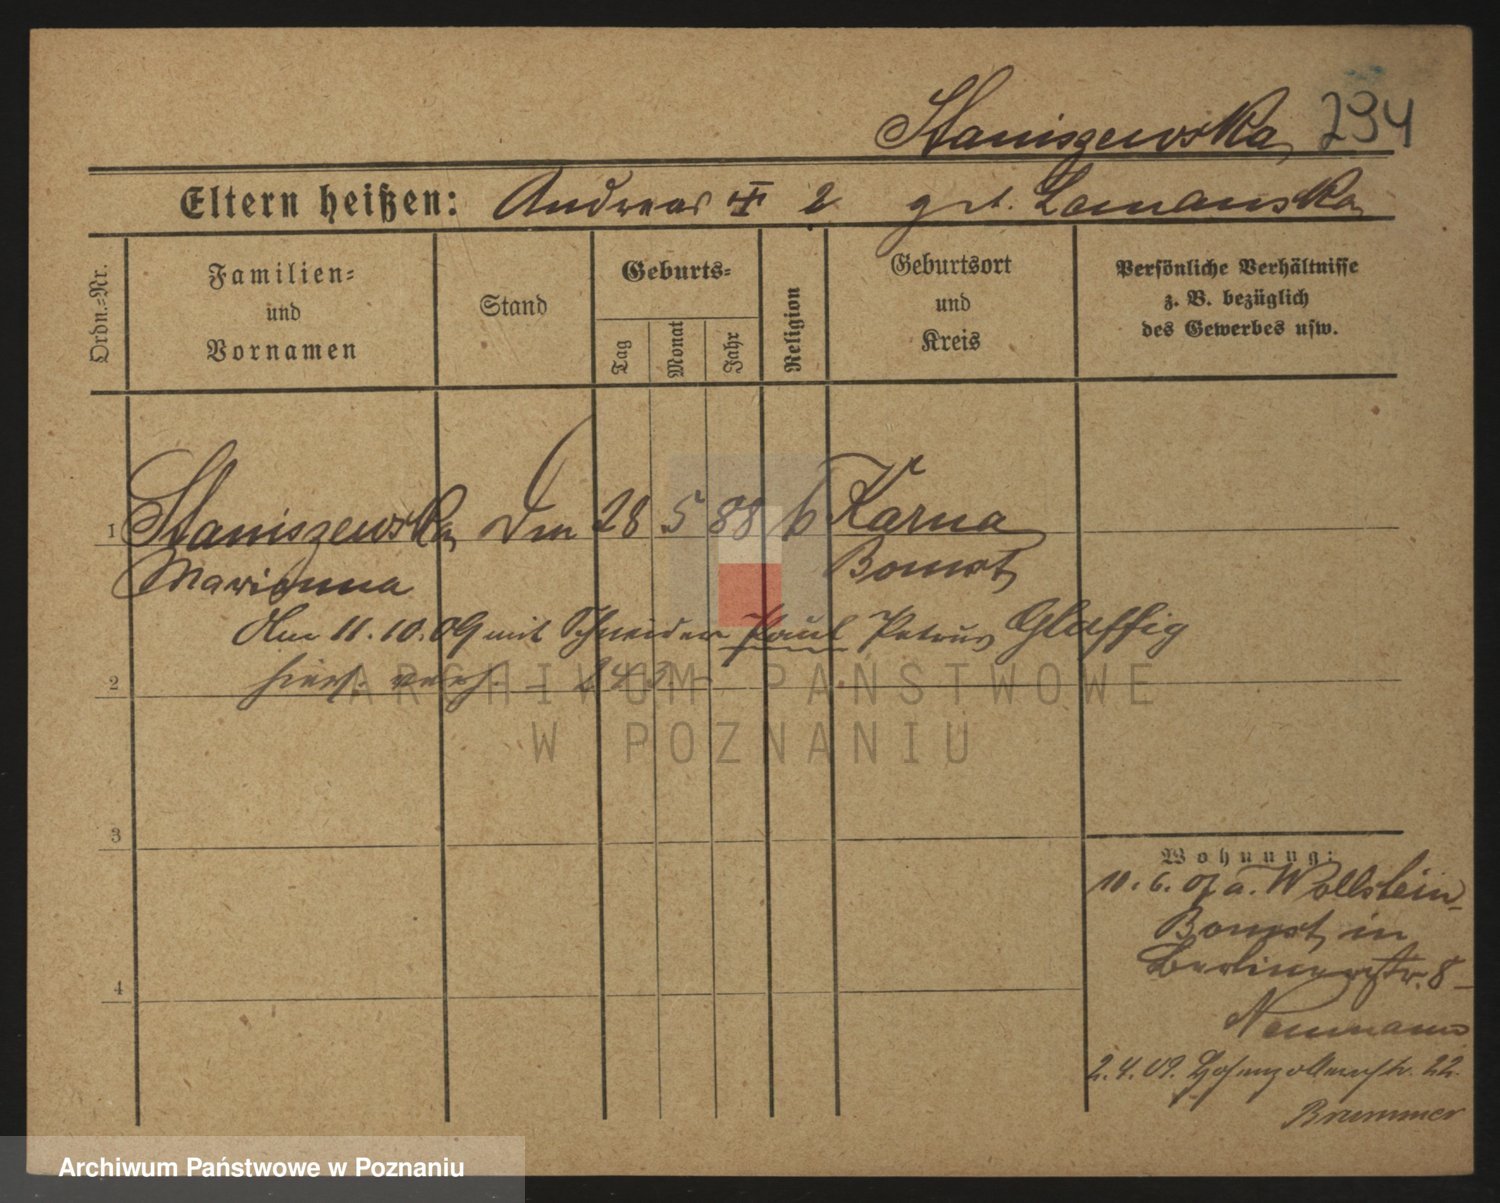 Staniszewska, 294
Eltern heißen: Andreas 2 geb. Lamanska
Ordn.-Nr.
Familien-
und
Vornamen
Stand
Geburts-
Tag
Monat
Jahr
Religion
Geburtsort
und
Kreis
Persönliche Verhältnisse
z. B. bezüglich
des Gewerbes usw.
1 Staniszewska 28 5 88 Karna
Marianna Bomst
Am 11.10.09 mit Schneider Paul Petrus Glaffig
2 hier verh.
3
4
Wohnung:
10. 6. 07 a. Wollstein-
Bomst in
Berlinerstr. 8
Neumann
2.4.09. Hohenzollernstr. 22.
Brummer
ARCHIWUM PAŃSTWOWE
W POZNANIU
Archiwum Państwowe w Poznaniu